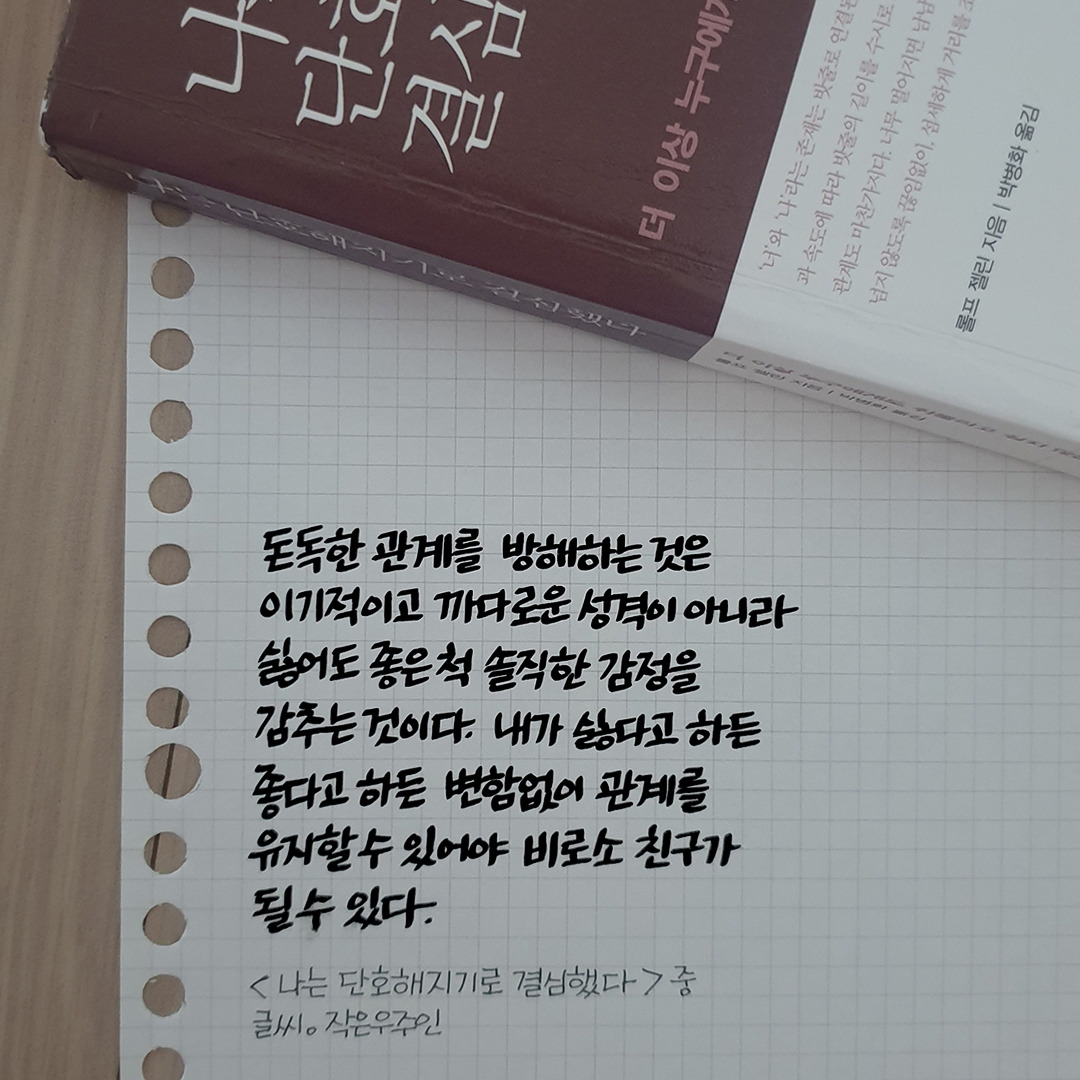 단호
결심
더 이상 누구에게
'너'와 '나'라는 존재는 밧줄로 연결된
과 속도에 따라 밧줄의 길이를 수시로
관계도 마찬가지다. 너무 멀어지면 남남
넘지 않도록 끊임없이, 섬세하게 거리를
롤프 젤린 지음 | 박병화 옮김
나는 단호해지기로 결심했다
돈독한 관계를 방해하는 것은
이기적이고 까다로운 성격이 아니라
싫어도 좋은 척 솔직한 감정을
감추는 것이다. 내가 싫다고 하든
좋다고 하든 변함없이 관계를
유지할 수 있어야 비로소 친구가
될 수 있다.
<나는 단호해지기로 결심했다> 중
글씨。작은우주인